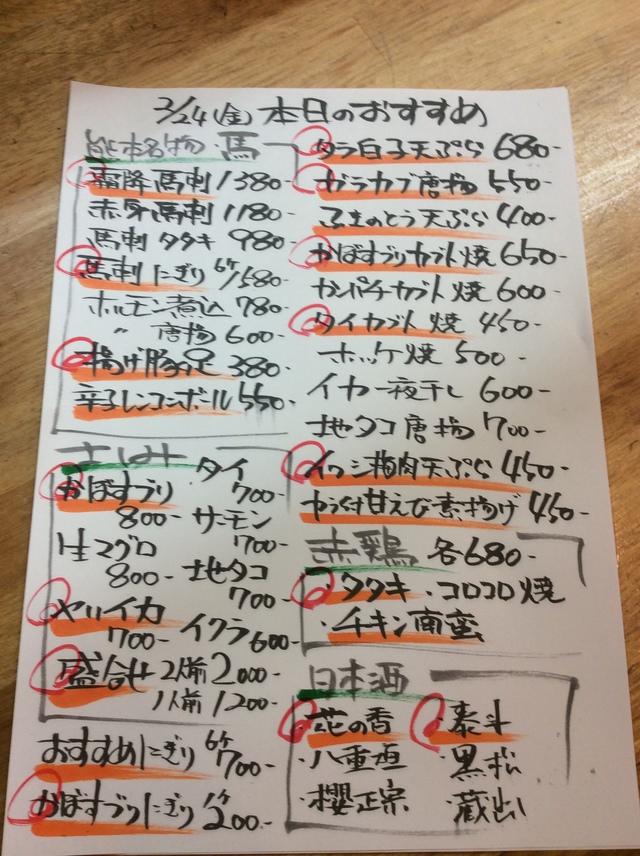 2/24(金)本日のおすすめ
熊本名物 馬
霜降馬刺 1380-
赤身馬刺 1180-
馬刺 タタキ 980-
馬刺にぎり 6ケ/580-
ホルモン煮込 780-
〃 唐揚 600-
揚げ豚足 380-
辛子レンコンボール 550-
さしみ
かぼすブリ 800-
生マグロ 800-
ヤリイカ 700-
タイ 700-
サーモン 700-
地タコ 700-
イクラ 600-
盛合せ 2人前 2000-
1人前 1200-
おすすめにぎり 6ケ 700-
かぼすブリにぎり 1ケ 200-
タラ白子天ぷら 680-
ガラカブ唐揚 550-
ふきのとう天ぷら 400-
かぼすブリカブト焼 650-
カンパチカブト焼 600-
タイカブト焼 450-
ホッケ焼 500-
イカ一夜干し 600-
地タコ唐揚 700-
イワシ梅肉天ぷら 450-
カラ付甘えび素揚げ 450-
赤鶏 各680-
・タタキ ・コロコロ焼
・チキン南蛮
日本酒
・花の香 ・泰斗
・八重垣 ・黒松
・櫻正宗 ・蔵出